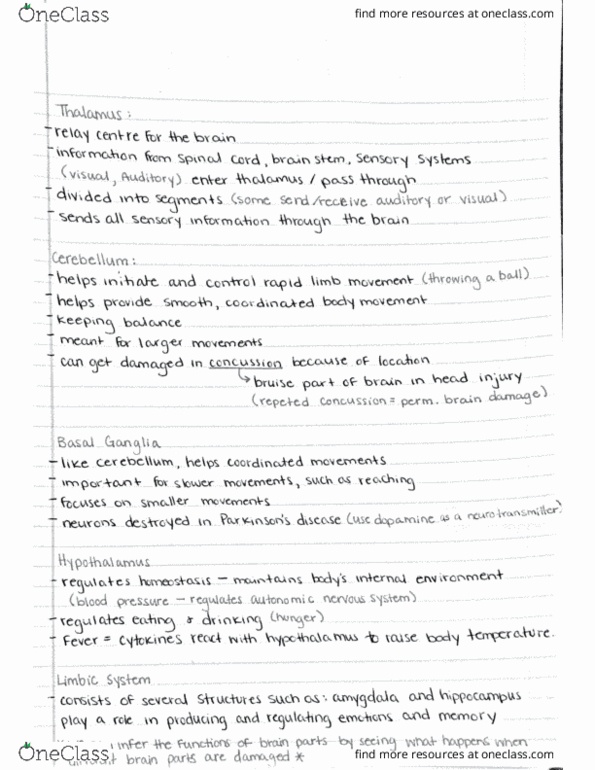 OneClass
find more resources at oneclass.com
Thalamus:
- relay centre for the brain
- information from spinal cord, brain stem, sensory systems
(visual, Auditory) enter thalamus / pass through
- divided into segments (some send/receive auditory or visual)
- sends all sensory information through the brain
Cerebellum:
- helps initate and control rapid limb movement (throwing a ball)
- helps provide smooth, coordinated body movement
- keeping balance
- meant for larger movements
- can get damaged in concussion because of location
↳ bruise part of brain in head injury
(repeted concussion = perm. brain damage)
Basal Ganglia
- like cerebellum, helps coordinated movements
- important for slower movements, such as reaching
- focuses on smaller movements
- neurons destroyed in Parkinson's disease (use dopamine as a neurotransmiller)
Hypothalamus
- regulates homeostasis - maintains body's internal environment
(blood pressure - regulates autonomic nervous system)
- regulates eating & drinking (hunger)
- Fever = cytokines react with hypothalamus to raise body temperature.
Limbic System
- consists of several structures such as: amygdala and hippocampus
play a role in producing and regulating emotions and memory
infer the functions of brain parts by seeing what happens when
brain parts are damaged *
OneClass
find more resources at oneclass.com